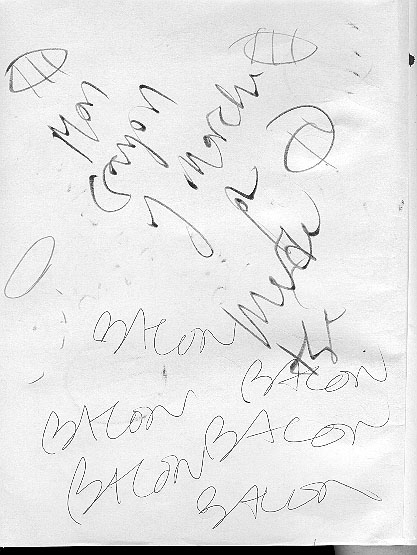 Mon
Crayon
y marche
a
BACON
BACON
BACON
BACON
BACON
BACON